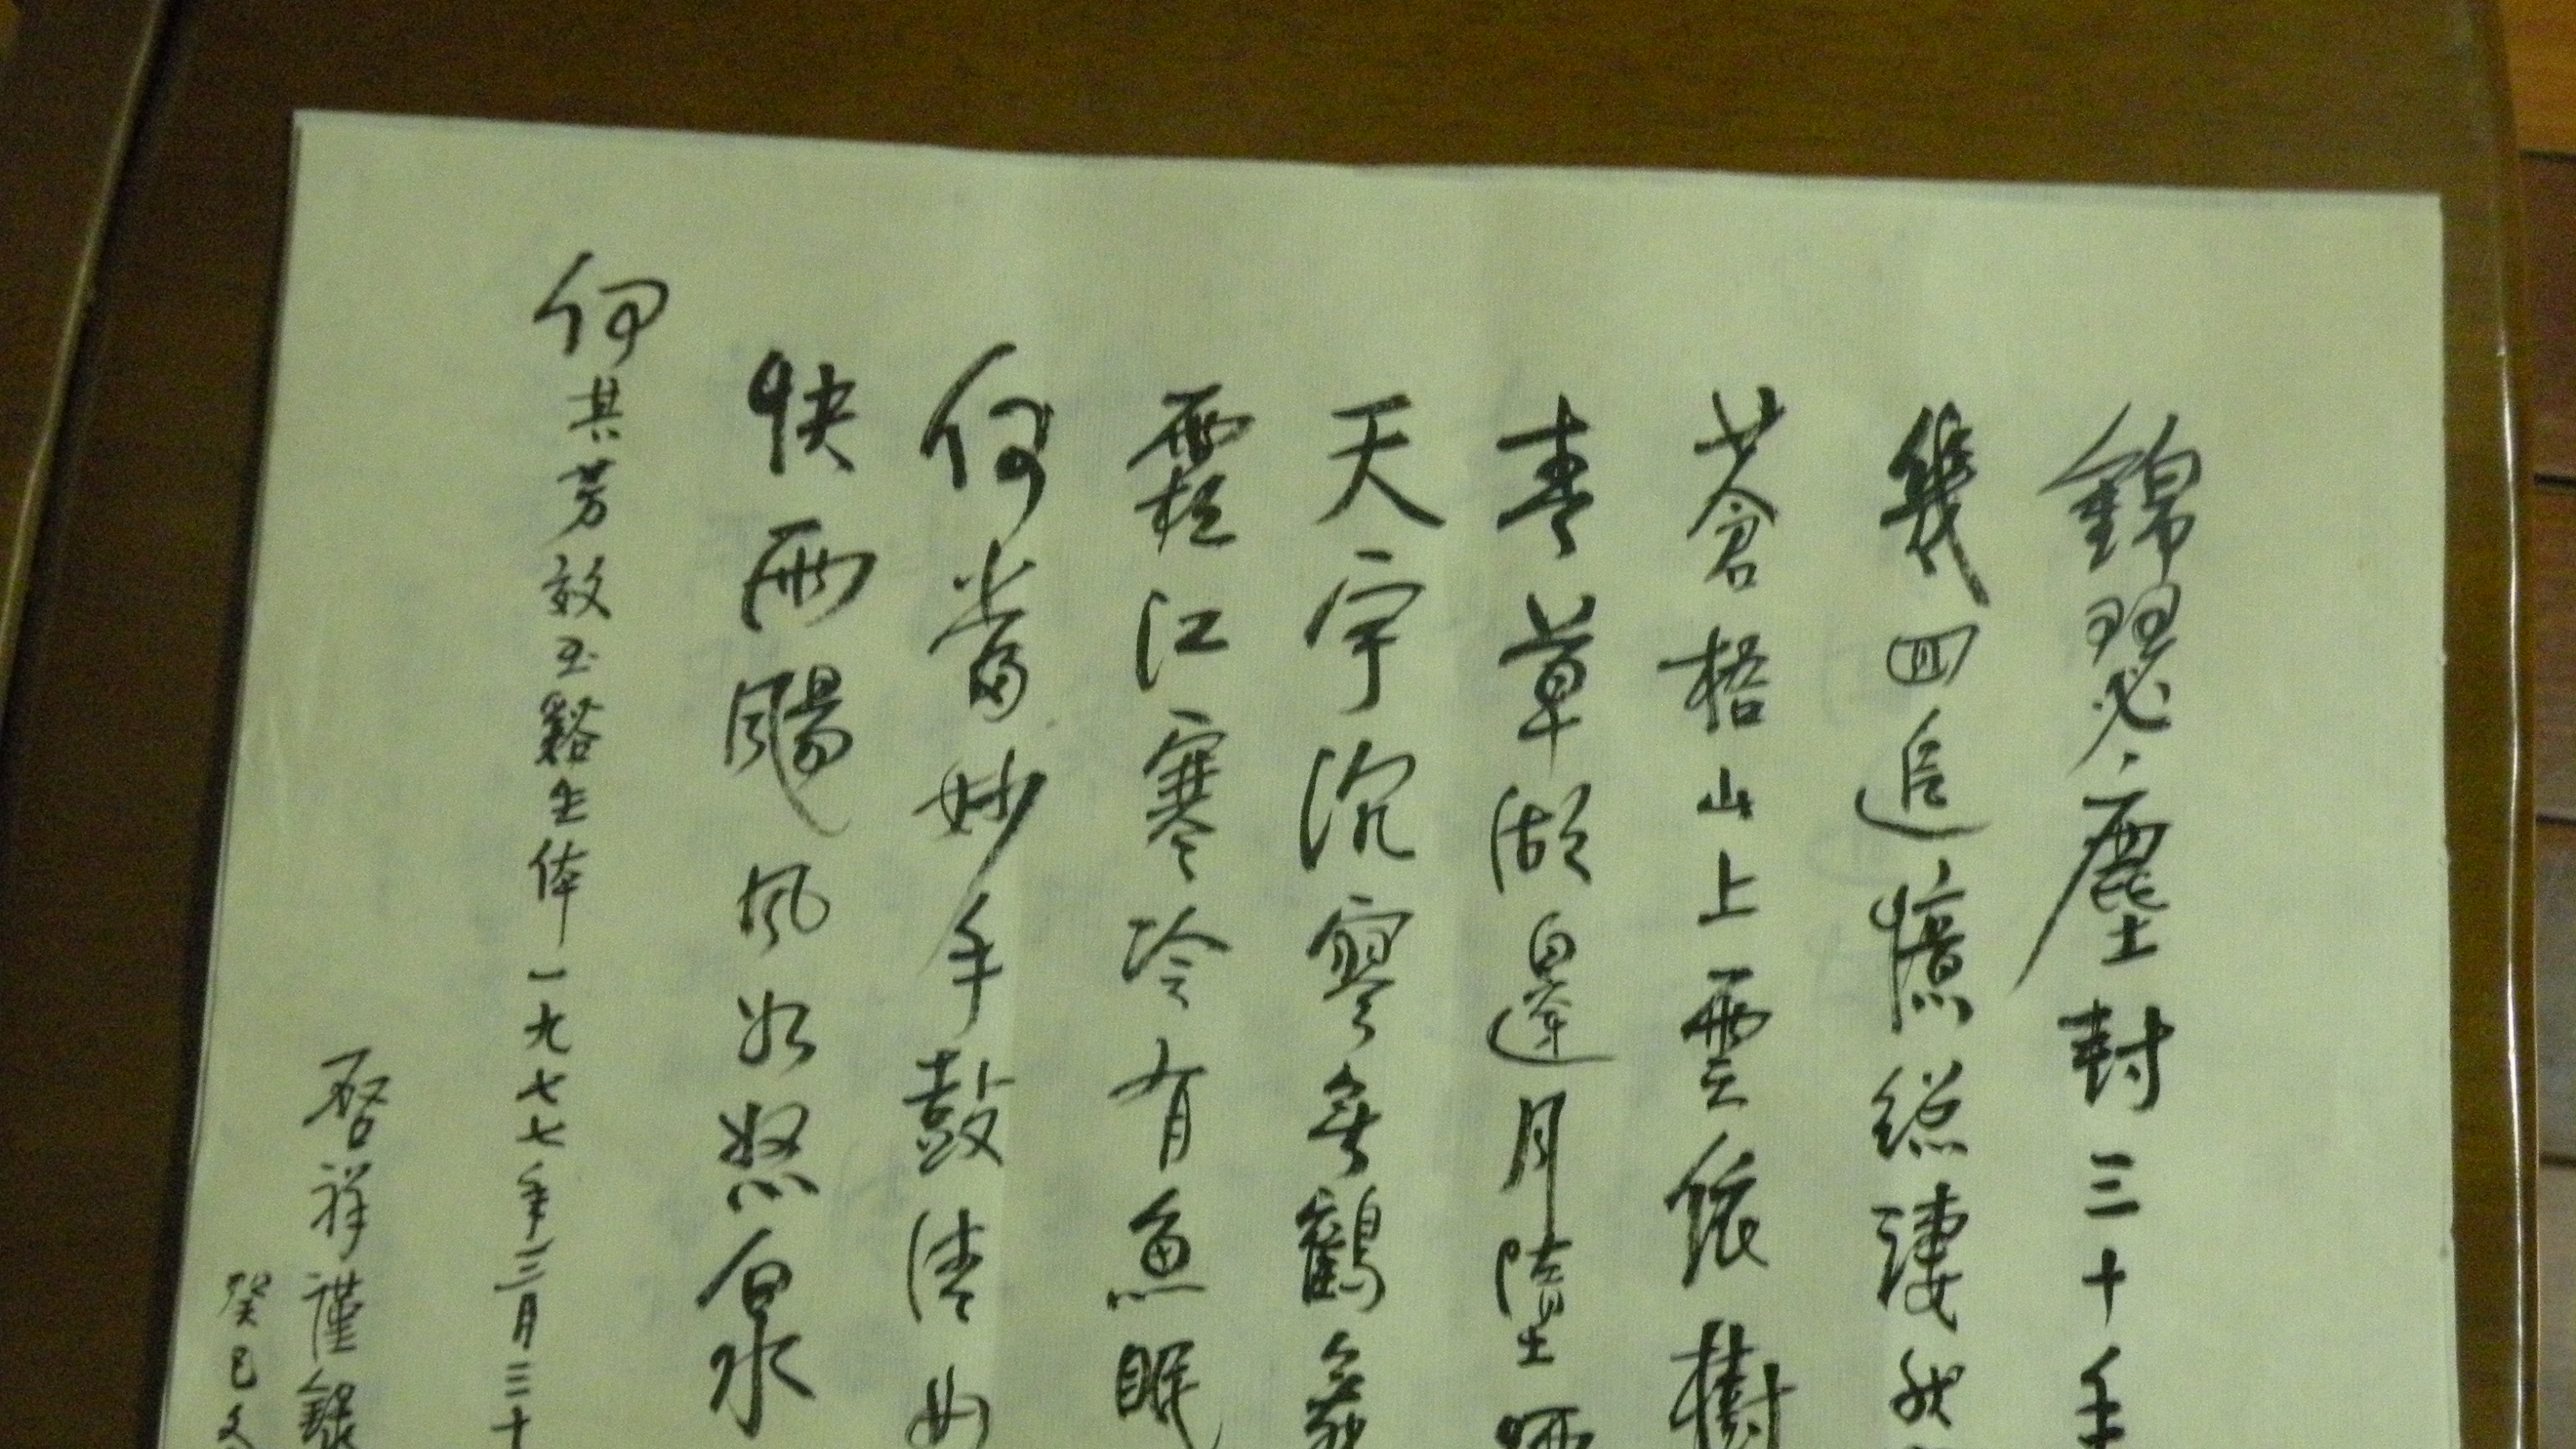 錦瑟塵封三十年
幾回追憶總凄然
蒼梧山上雲依樹
青草湖邊月墮
天宇沉寥無鶴舞
霜江寒冷有魚眠
何當妙手鼓清
快雨颺風如怒泉
何其芳效玉谿生体一九七七年三月三十
啓祥謹錄
癸巳冬